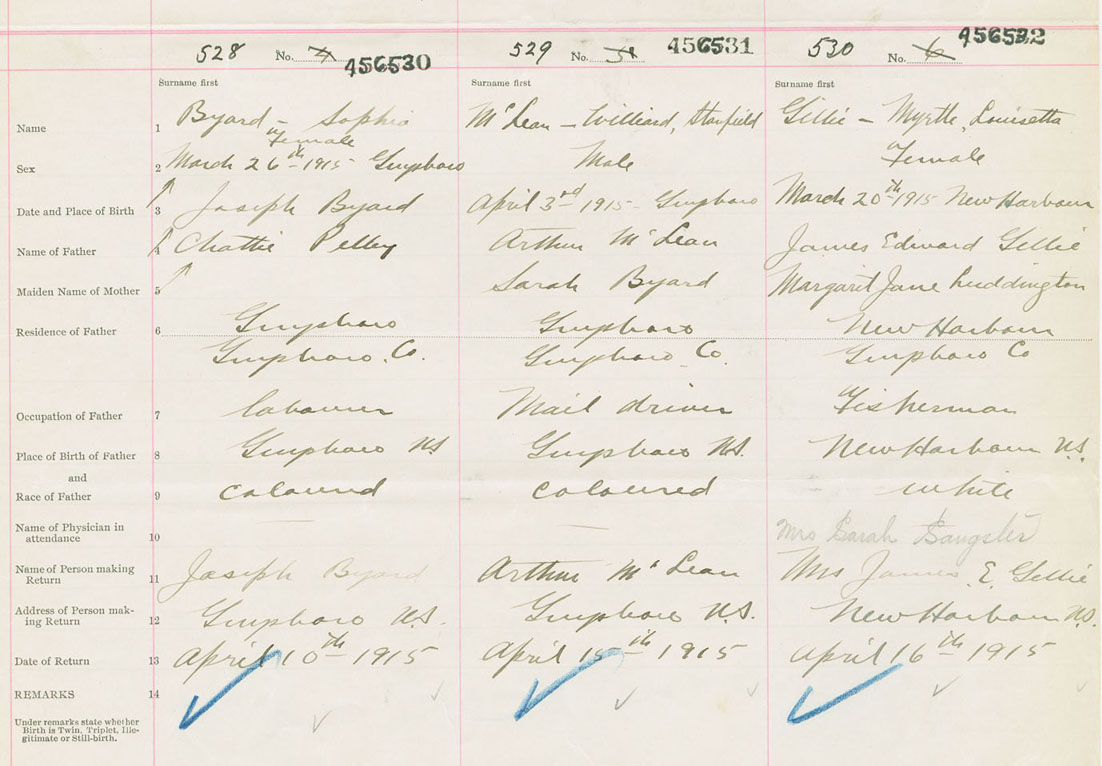 528 No. 4 456530 529 No. 5 456531 530 No. 6 456532
Surname first Surname first Surname first
Name 1 Byard - Sophia McLean - Williard, Stanfield Gillie - Myrtle, Louisetta
Female
Sex 2 March 26th 1915 Guysboro Male Female
Date and Place of Birth 3 Joseph Byard April 3rd 1915 - Guysboro March 20th 1915 New Harbour
Name of Father 4 Chattie Pelley Arthur McLean James Edward Gillie
Maiden Name of Mother 5 Sarah Byard Margarit Jane Luddington
Residence of Father 6 Guysboro Guysboro New Harbour
Guysboro. Co. Guysboro Co. Guysboro Co
Occupation of Father 7 labourer Mail driver Fisherman
Place of Birth of Father 8 Guysboro NS Guysboro NS. New Harbour N.S.
and
Race of Father 9 coloured coloured white
Name of Physician in
attendance 10 — — Mrs Sarah Sangster
Name of Person making
Return 11 Joseph Byard Arthur McLean Mrs James E. Gillie
Address of Person mak-
ing Return 12 Guysboro N.S. Guysboro N.S. New Harbour N.S.
Date of Return 13 April 10th 1915 April 15th 1915 April 16th 1915
REMARKS 14
Under remarks state whether
Birth is Twin, Triplet, Ille-
gitimate or Still-birth.